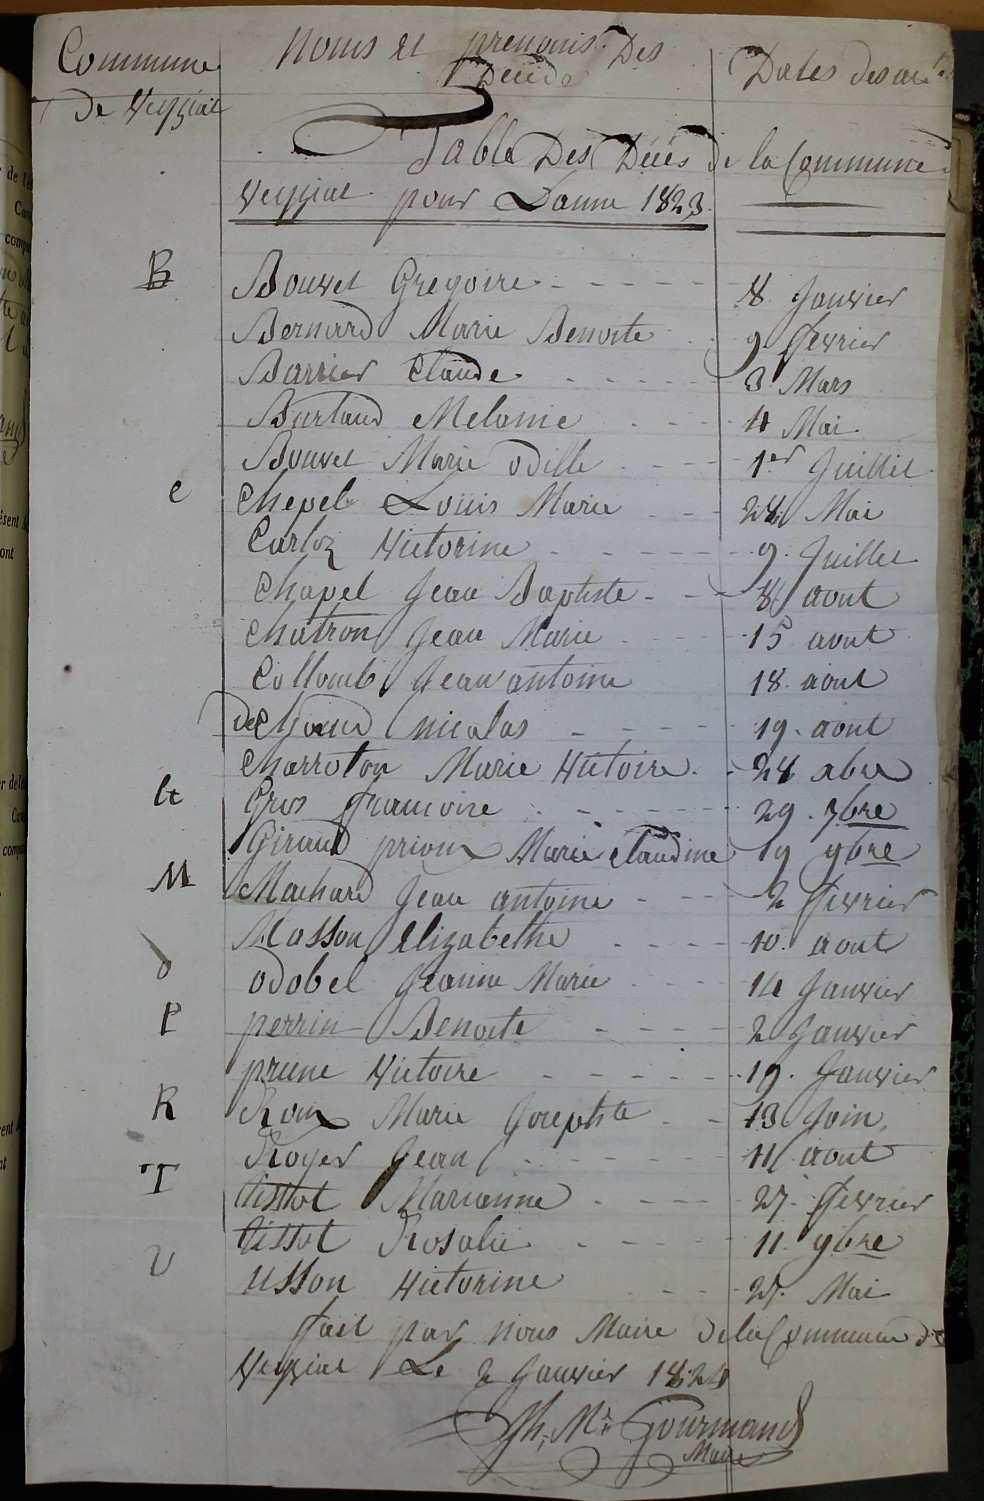 Commune Noms et prenoms Des Dates des
de Veyziat Décédés
Table Des Décés de la Commune
Veyziat pour L'anne 1823
B Bouvet Gregoire 8 Janvier
Bernard Marie Benoite 9 fevrier
Barrier Claude 3 Mars
Burtaud Melanie 4 Mai
Bouvet Marie odille 1er Juillet
C Chapel Louis Marie 28 Mai
Carloz Victorine 9 Juillet
Chapel Jean Baptiste 8 aout
Chatron Jean Marie 15 aout
Collomb Jean antoine 18 aout
nicolas 19 aout
Charroton Marie Victoire 28 xbre
G Gros francoise 29 7bre
Giraud prioux Marie claudine 19 9bre
M Machard Jean antoine 2 fevrier
Masson Elizabethe 10 aout
O odobel Jeanne Marie 14 Janvier
P perrin Benoite 2 Janvier
prune Victoire 19 Janvier
R Roux Marie Josephte 13 Join
Royer Jean 11 aout
T tissot Marianne 27 fevrier
tissot Rosalie 11 9bre
U Usson Victorine 27 Mai
fait par nous Maire de la Commune de
Veyziat Le 2 Janvier 1824
Jh. Mie Gourmand
Maire